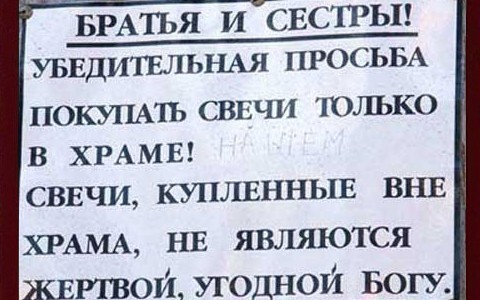 БРАТЬЯ И СЕСТРЫ!
УБЕДИТЕЛЬНАЯ ПРОСЬБА
ПОКУПАТЬ СВЕЧИ ТОЛЬКО
В ХРАМЕ! НАШЕМ
СВЕЧИ, КУПЛЕННЫЕ ВНЕ
ХРАМА, НЕ ЯВЛЯЮТСЯ
ЖЕРТВОЙ, УГОДНОЙ БОГУ.